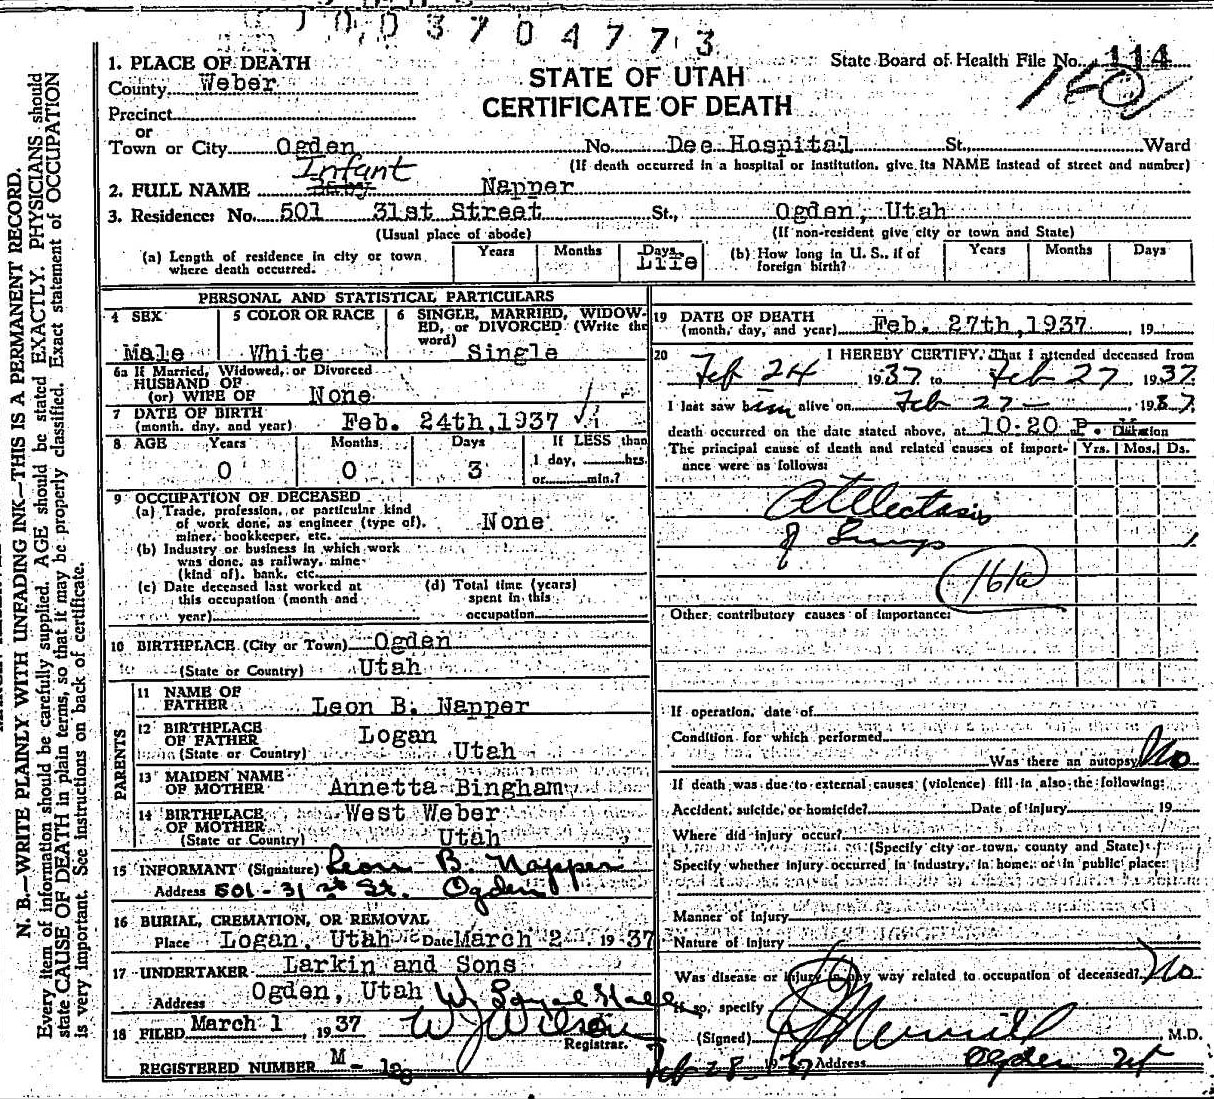 1 0 0 3 7 0 4 7 7 3
State Board of Health File No. 114
160
STATE OF UTAH
CERTIFICATE OF DEATH
1. PLACE OF DEATH
County Weber
Precinct
or
Town or City Ogden No. Dee Hospital St., Ward
(If death occurred in a hospital or institution, give its NAME instead of street and number)
Infant
2. FULL NAME Baby Napper
3. Residence: No. 501 31st Street St., Ogden, Utah
(Usual place of abode) (If non-resident give city or town and State)
(a) Length of residence in city or town where death occurred. Years Months Days Life (b) How long in U. S., if of foreign birth? Years Months Days
PERSONAL AND STATISTICAL PARTICULARS
4 SEX 5 COLOR OR RACE 6 SINGLE, MARRIED, WIDOW-
ED, or DIVORCED (Write the
word)
Male White Single
6a If Married, Widowed, or Divorced
HUSBAND OF
(or) WIFE OF None
7 DATE OF BIRTH
(month, day, and year) Feb. 24th,1937
8 AGE Years Months Days If LESS than
0 0 3 1 day, hrs.
or min.?
9 OCCUPATION OF DECEASED
(a) Trade, profession, or particular kind
of work done, as engineer (type of), None
miner, bookkeeper, etc.
(b) Industry or business in which work
was done, as railway, mine
(kind of), bank, etc.
(c) Date deceased last worked at (d) Total time (years)
this occupation (month and spent in this
year) occupation
10 BIRTHPLACE (City or Town) Ogden
(State or Country) Utah
PARENTS
11 NAME OF
FATHER Leon B. Napper
12 BIRTHPLACE Logan
OF FATHER
(State or Country) Utah
13 MAIDEN NAME
OF MOTHER Annetta Bingham
14 BIRTHPLACE West Weber
OF MOTHER
(State or Country) Utah
15 INFORMANT (Signature) Leon B. Napper
Address 501-31st St. Ogden
16 BURIAL, CREMATION, OR REMOVAL
Place Logan, Utah Date March 2 1937
17 UNDERTAKER Larkin and Sons
Address Ogden, Utah
18 FILED March 1 1937 W J Wilson
Registrar.
REGISTERED NUMBER M-128
19 DATE OF DEATH
(month, day, and year) Feb. 27th,1937 , 19
20 I HEREBY CERTIFY, That I attended deceased from
Feb 24 1937 to Feb 27 1937
I last saw him alive on Feb 27 1937
death occurred on the date stated above, at 10:20 P. M. Duration
The principal cause of death and related causes of import- Yrs. Mos. Ds.
ance were as follows:
Atelectasis
of Lungs
161a
Other contributory causes of importance:
If operation, date of
Condition for which performed
Was there an autopsy No
If death was due to external causes (violence) fill in also the following:
Accident, suicide, or homicide? Date of injury 19
Where did injury occur?
(Specify city or town, county and State)
Specify whether injury occurred in industry, in home, or in public place:
Manner of Injury
Nature of Injury
Was disease or injury in any way related to occupation of deceased? No
If so, specify
(Signed) Merrill M.D.
Feb 28 1937 Address Ogden Ut
N. B.—WRITE PLAINLY WITH UNFADING INK—THIS IS A PERMANENT RECORD.
Every item of information should be carefully supplied. AGE should be stated EXACTLY. PHYSICIANS should
state CAUSE OF DEATH in plain terms, so that it may be properly classified. Exact statement of OCCUPATION
is very important. See instructions on back of certificate.